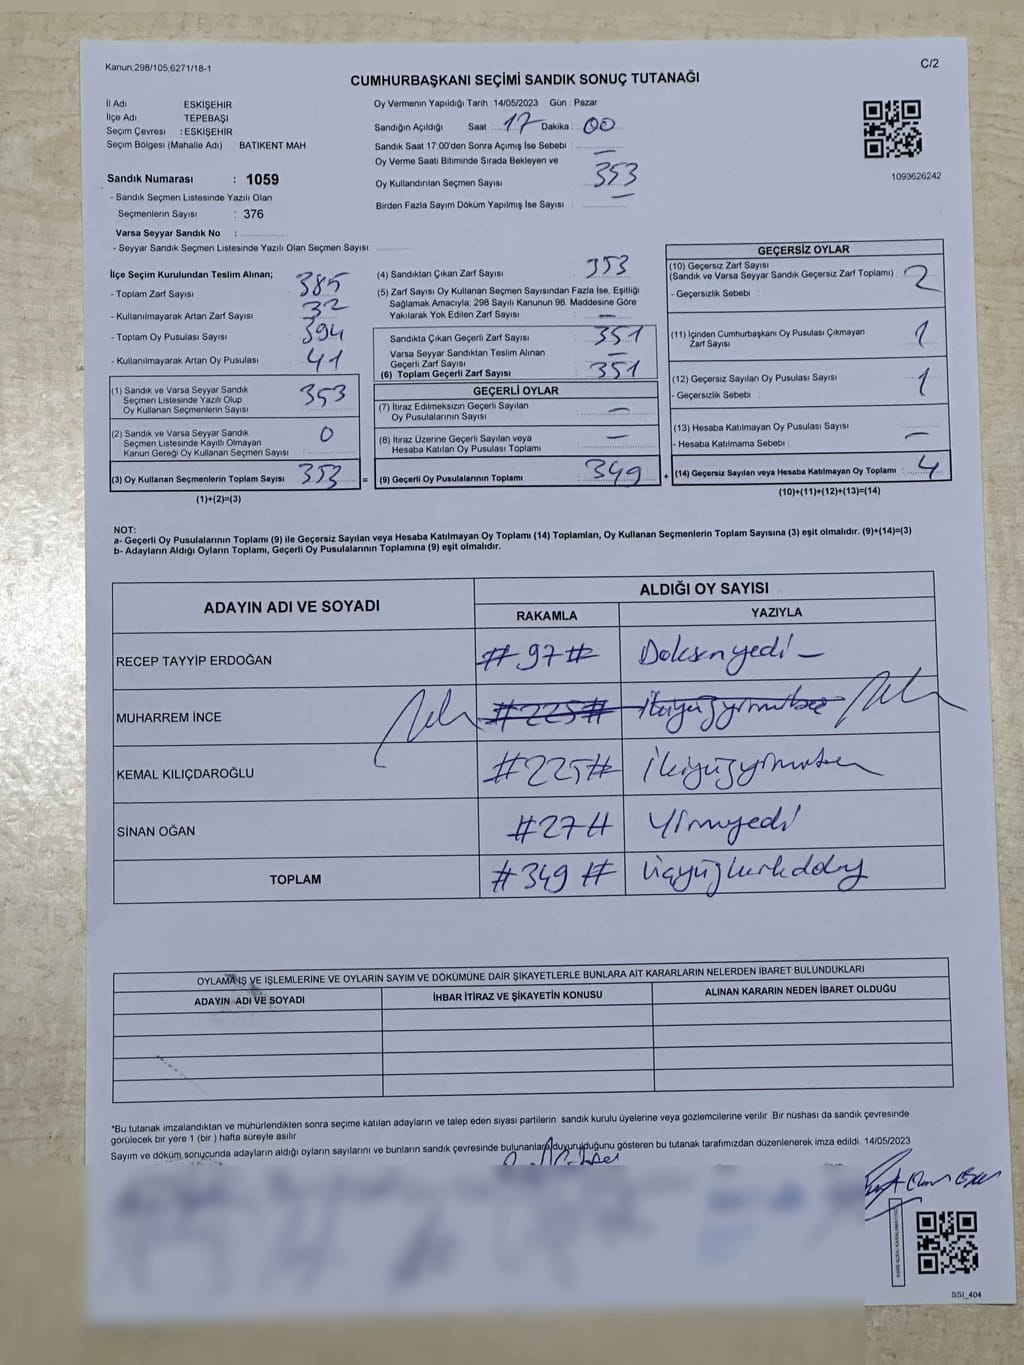 Kanun.298/105,6271/18-1
C/2
CUMHURBAŞKANI SEÇİMİ SANDIK SONUÇ TUTANAĞI
İl Adı : ESKİŞEHİR
İlçe Adı : TEPEBAŞI
Seçim Çevresi : ESKİŞEHİR
Seçim Bölgesi (Mahalle Adı) : BATIKENT MAH
Sandık Numarası : 1059
- Sandık Seçmen Listesinde Yazılı Olan
Seçmenlerin Sayısı : 376
Varsa Seyyar Sandık No :
- Seyyar Sandık Seçmen Listesinde Yazılı Olan Seçmen Sayısı
Oy Vermenin Yapıldığı Tarih : 14/05/2023 Gün : Pazar
Sandığın Açıldığı Saat : 17 Dakika : 00
Sandık Saat 17.00'den Sonra Açımış İse Sebebi : —
Oy Verme Saati Bitiminde Sırada Bekleyen ve
Oy Kullandırılan Seçmen Sayısı : 353
Birden Fazla Sayım Döküm Yapılmış İse Sayısı : —
1093626242
İlçe Seçim Kurulundan Teslim Alınan;
- Toplam Zarf Sayısı : 385
- Kullanılmayarak Artan Zarf Sayısı : 32
- Toplam Oy Pusulası Sayısı : 394
- Kullanılmayarak Artan Oy Pusulası : 41
(1) Sandık ve Varsa Seyyar Sandık
Seçmen Listesinde Yazılı Olup
Oy Kullanan Seçmenlerin Sayısı : 353
(2) Sandık ve Varsa Seyyar Sandık
Seçmen Listesinde Kayıtlı Olmayan
Kanun Gereği Oy Kullanan Seçmen Sayısı : 0
(3) Oy Kullanan Seçmenlerin Toplam Sayısı : 353
(1)+(2)=(3)
(4) Sandıktan Çıkan Zarf Sayısı : 353
(5) Zarf Sayısı Oy Kullanan Seçmen Sayısından Fazla İse, Eşitliği
Sağlamak Amacıyla; 298 Sayılı Kanunun 98. Maddesine Göre
Yakılarak Yok Edilen Zarf Sayısı : —
Sandıkta Çıkan Geçerli Zarf Sayısı : 351
Varsa Seyyar Sandıktan Teslim Alınan
Geçerli Zarf Sayısı : —
(6) Toplam Geçerli Zarf Sayısı : 351
GEÇERLİ OYLAR
(7) İtiraz Edilmeksizin Geçerli Sayılan
Oy Pusulalarının Sayısı : —
(8) İtiraz Üzerine Geçerli Sayılan veya
Hesaba Katılan Oy Pusulası Toplamı : —
= (9) Geçerli Oy Pusulalarının Toplamı : 349 +
GEÇERSİZ OYLAR
(10) Geçersiz Zarf Sayısı
(Sandık ve Varsa Seyyar Sandık Geçersiz Zarf Toplamı) : 2
- Geçersizlik Sebebi :
(11) İçinden Cumhurbaşkanı Oy Pusulası Çıkmayan
Zarf Sayısı : 1
(12) Geçersiz Sayılan Oy Pusulası Sayısı : 1
- Geçersizlik Sebebi :
(13) Hesaba Katılmayan Oy Pusulası Sayısı : —
- Hesaba Katılmama Sebebi :
(14) Geçersiz Sayılan veya Hesaba Katılmayan Oy Toplamı : 4
(10)+(11)+(12)+(13)=(14)
NOT:
a- Geçerli Oy Pusulalarının Toplamı (9) ile Geçersiz Sayılan veya Hesaba Katılmayan Oy Toplamı (14) Toplamları, Oy Kullanan Seçmenlerin Toplam Sayısına (3) eşit olmalıdır. (9)+(14)=(3)
b- Adayların Aldığı Oyların Toplamı, Geçerli Oy Pusulalarının Toplamına (9) eşit olmalıdır.
ADAYIN ADI VE SOYADI
ALDIĞI OY SAYISI
RAKAMLA YAZIYLA
RECEP TAYYİP ERDOĞAN #97# Doksanyedi —
MUHARREM İNCE #225# İkiyüzyirmibeş
KEMAL KILIÇDAROĞLU #225# İkiyüzyirmibeş
SİNAN OĞAN #27# Yirmiyedi
TOPLAM #349# Üçyüzkırkdokuz
OYLAMA İŞ VE İŞLEMLERİNE VE OYLARIN SAYIM VE DÖKÜMÜNE DAİR ŞİKAYETLERLE BUNLARA AİT KARARLARIN NELERDEN İBARET BULUNDUKLARI
ADAYIN ADI VE SOYADI İHBAR İTİRAZ VE ŞİKAYETİN KONUSU ALINAN KARARIN NEDEN İBARET OLDUĞU
*Bu tutanak imzalandıktan ve mühürlendikten sonra seçime katılan adayların ve talep eden siyasi partilerin sandık kurulu üyelerine veya gözlemcilerine verilir. Bir nüshası da sandık çevresinde
görülecek bir yere 1 (bir) hafta süreyle asılır
Sayım ve döküm sonucunda adayların aldığı oyların sayılarını ve bunların sandık çevresinde bulunanlara duyurulduğunu gösteren bu tutanak tarafımızdan düzenlenerek imza edildi. 14/05/2023
SSI_404